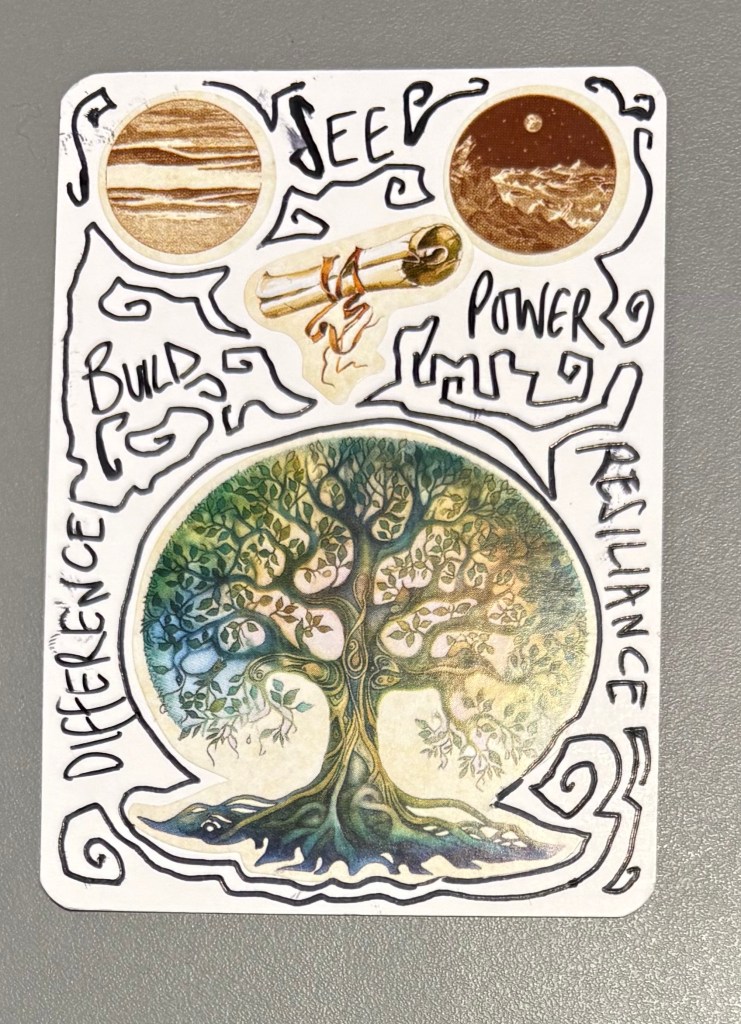 SEE
POWER
BUILD
RESILIANCE
DIFFERENCE